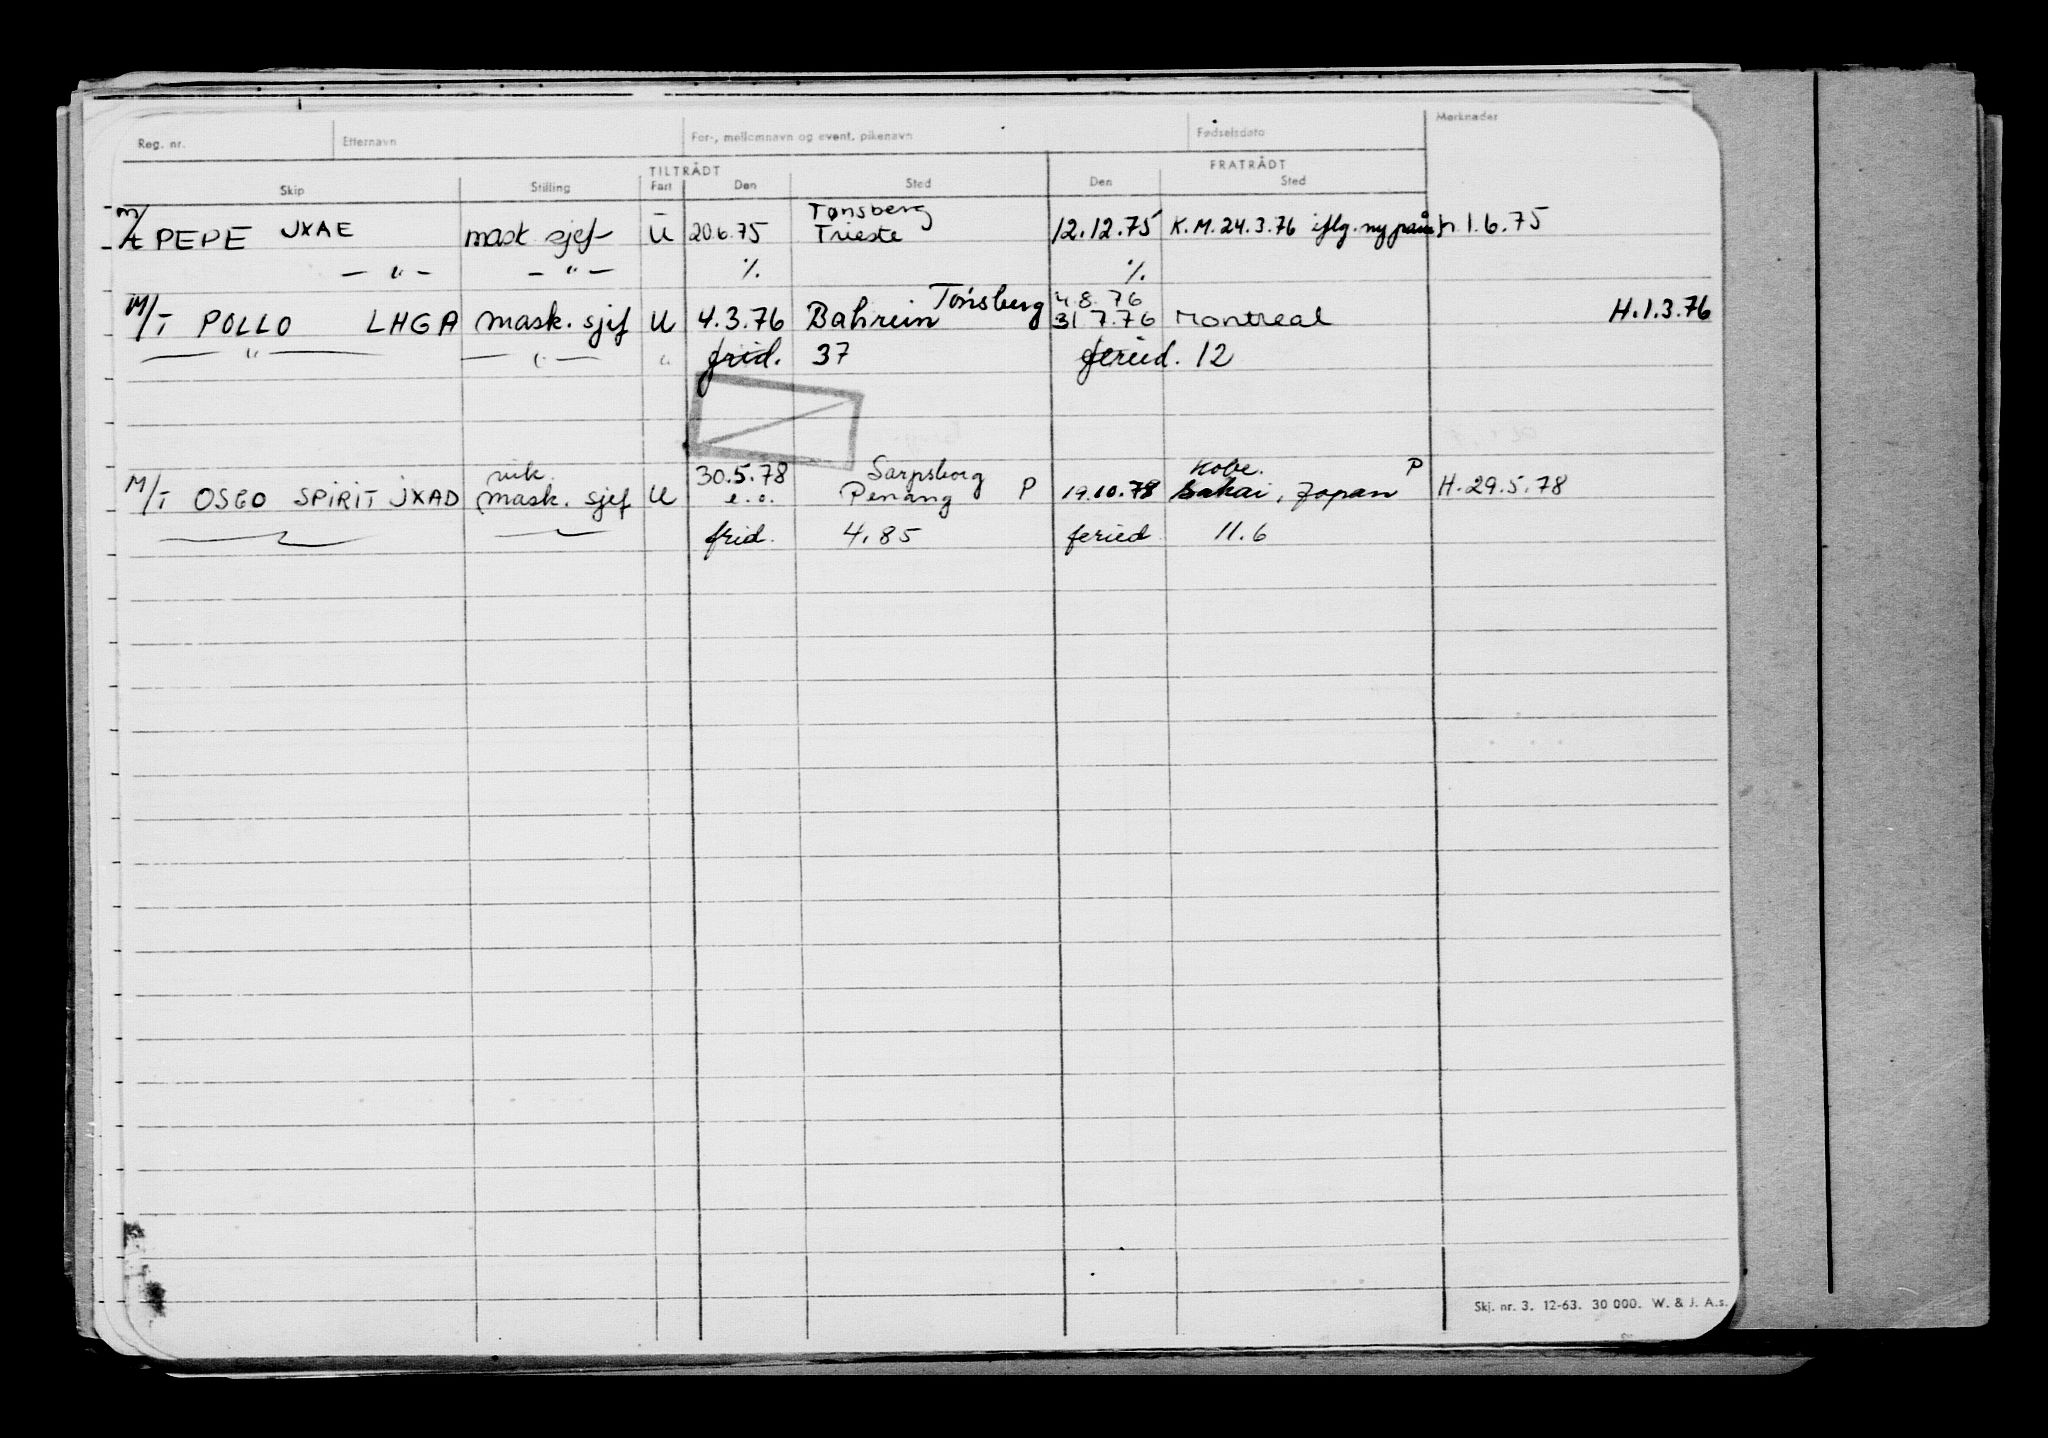 Reg. nr. Etternavn For-, mellomnavn og event. pikenavn Fødselsdato Merknader
TILTRÅDT FRATRÅDT
Skip Stilling Fart Den Sted Den Sted
Tønsberg
M/t PEPE JXAE mask sjef U 20.6.75 Trieste 12.12.75 K.M. 24.3.76 iflg. ny påm h 1.6.75
— " — — " — ·/. ·/.
Tønsberg 4.8.76
M/T POLLO LHGA mask. sjef U 4.3.76 Bahrein 31.7.76 Montreal H.1.3.76
— " — — " — " frid. 37 feried. 12
vik. 30.5.78 Sarpsborg Kobe. P
M/T OSCO SPIRIT JXAD mask. sjef U e.o. Penang P 19.10.78 Sakai, Japan H.29.5.78
frid. 4.85 feried 11.6
Skj. nr. 3. 12-63. 30 000. W. & J. A.s.